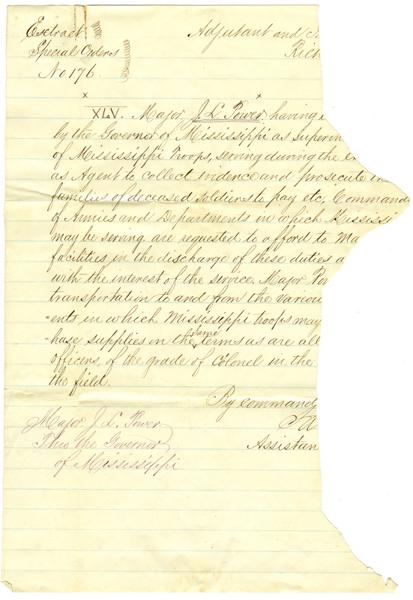 Extract
Special Orders
No. 176.
Adjutant and
Rich
XLV. Major J. L. Power having
by the Governor of Mississippi as Superin
of Mississippi Troops, serving during the
as Agent to collect evidence and prosecute
families of deceased soldiers to pay etc; Commande
of Armies and Departments in which Mississi
may be serving are requested to afford to Ma
facilities in the discharge of these duties
with the interest of the service. Major Po
transportation to and from the various
ents in which Mississippi troops may
hase supplies on the same terms as are all
officers, of the grade of Colonel in the
the field.
By command
Assistan
Major J. L. Power
Thro the Governor
of Mississippi